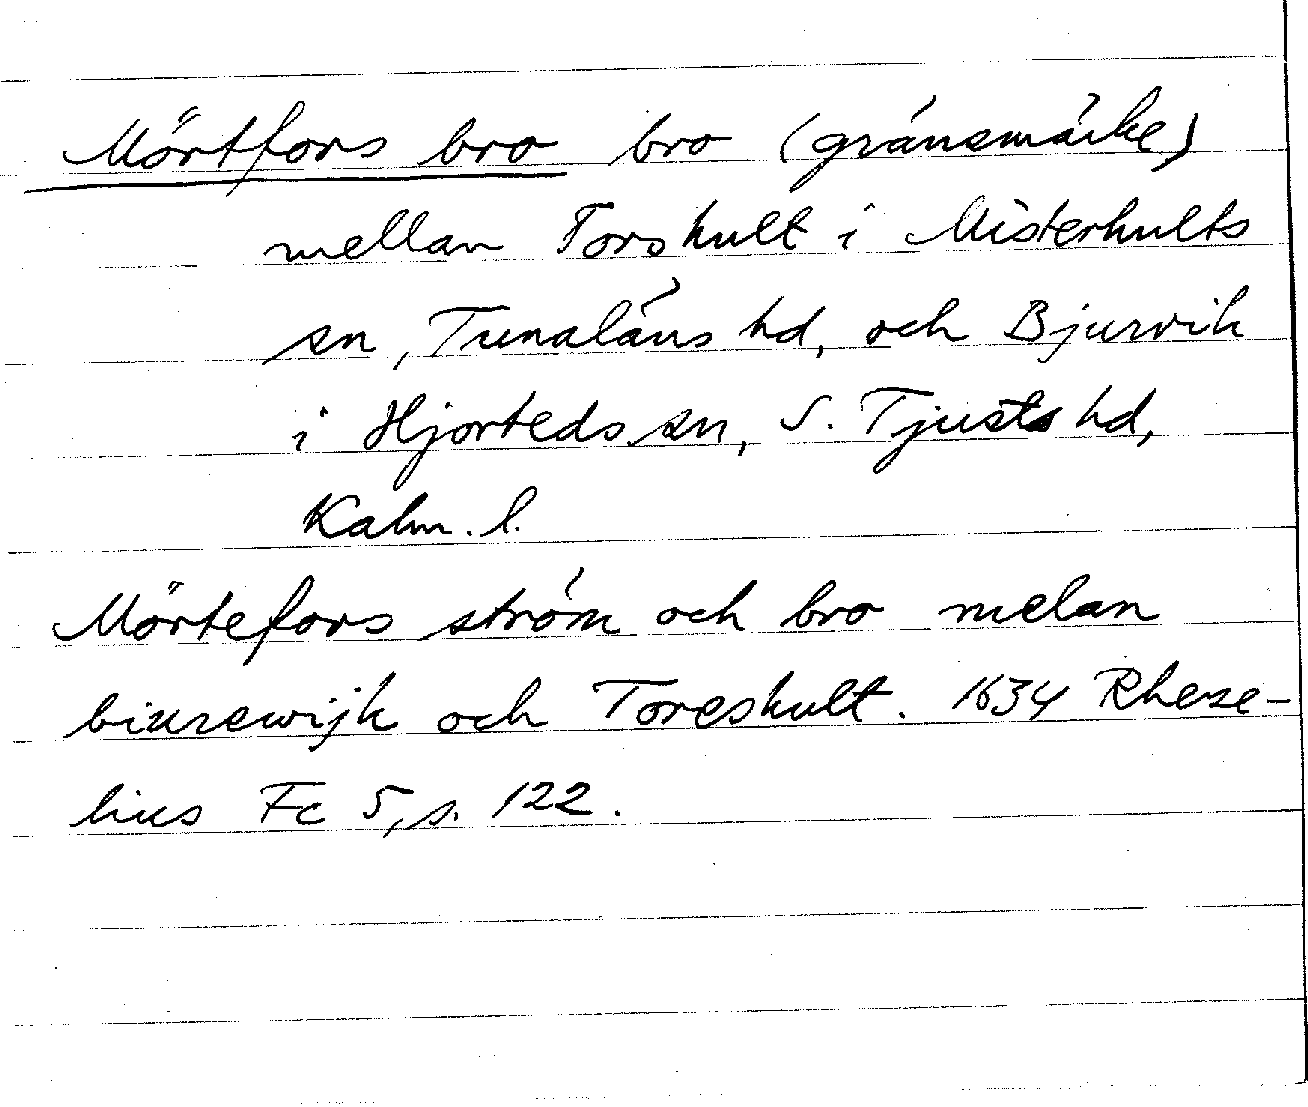 Mörtfors bro bro (gränsmärke)
mellan Torshult i Misterhults
sn, Tunaläns hd, och Bjurvik
i Hjorteds sn, S. Tjusts hd,
Kalm. l.
Mörtefors ström och bro melan
biurewijk och Toreshult. 1634 Rheze-
lius Fc 5, s. 122.